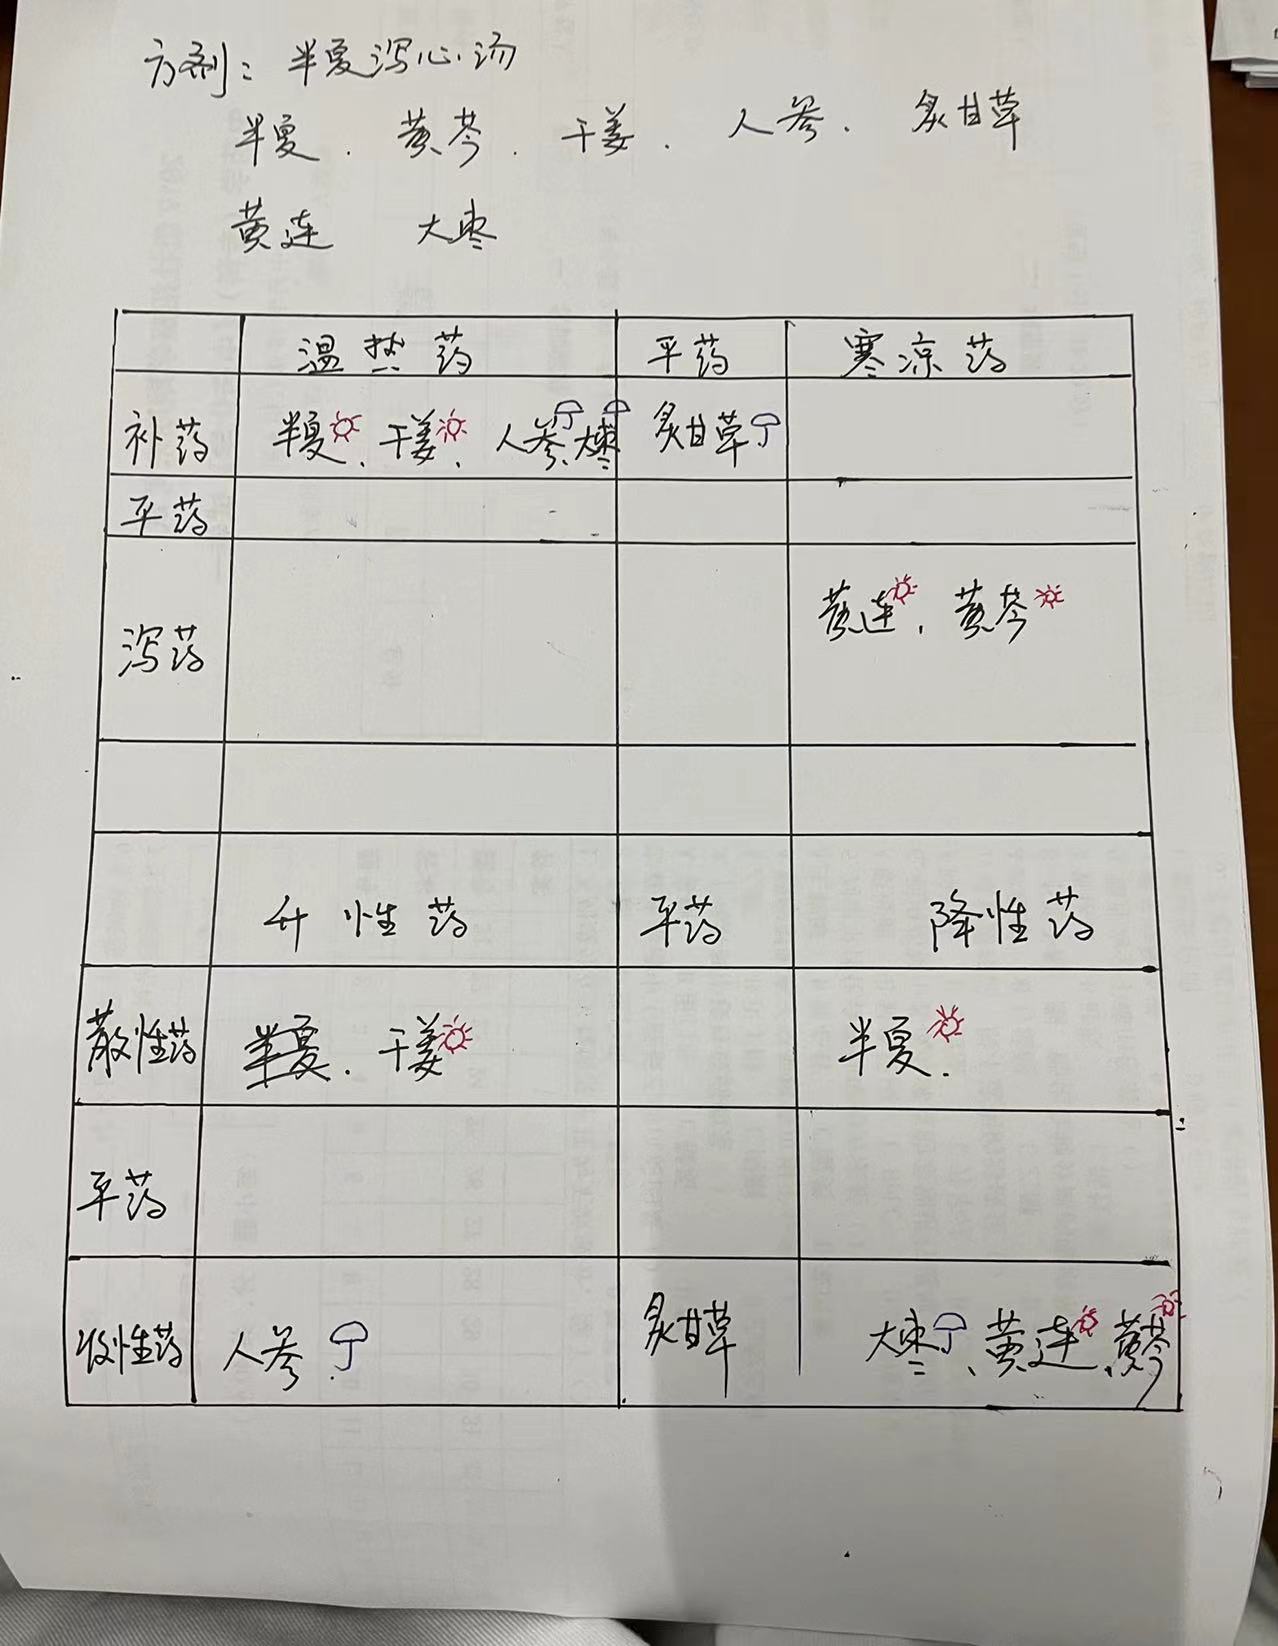 方剂：半夏泻心汤
半夏．黄芩．干姜．人参．炙甘草
黄连 大枣
温热药 平药 寒凉药
补药 半夏、干姜、人参、大枣 炙甘草
平药
泻药 黄连、黄芩
升性药 平药 降性药
散性药 半夏．干姜 半夏．
平药
收性药 人参 炙甘草 大枣、黄连、黄芩